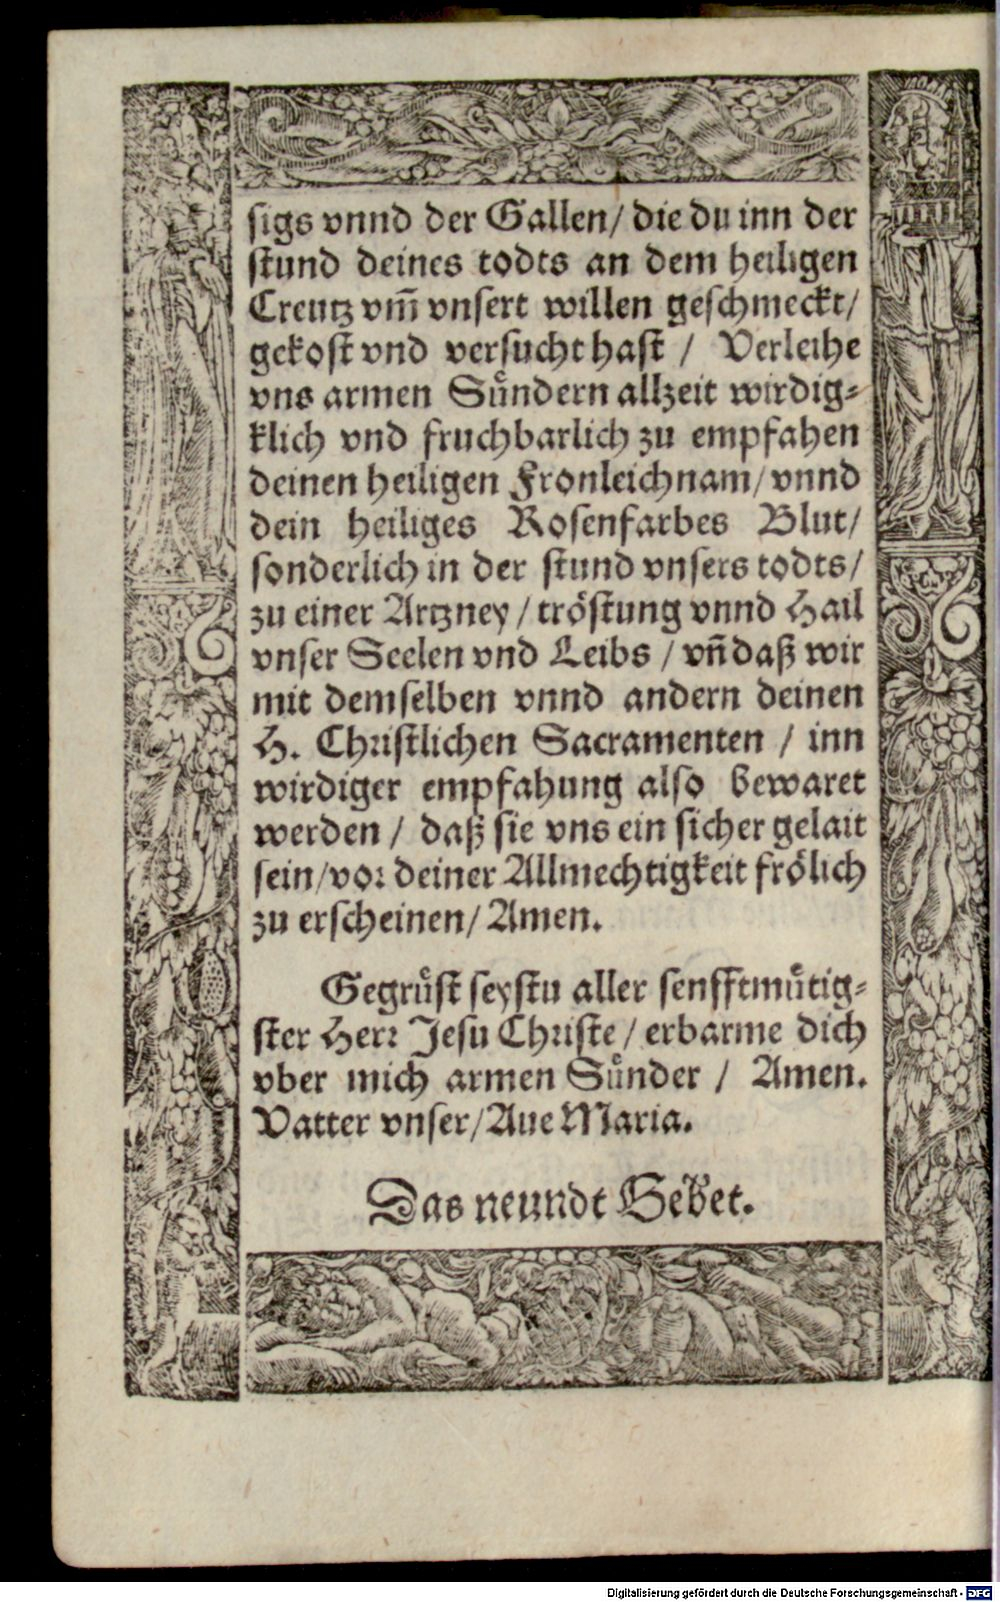 sigs vnnd der Gallen/ die du inn der
stund deines todts an dem heiligen
Creutz vm̃ vnsert willen geschmeckt/
gekost vnd versucht hast / Verleihe
vns armen Sůndern allzeit wirdig-
klich vnd fruchbarlich zu empfahen
deinen heiligen Fronleichnam/ vnnd
dein heiliges Rosenfarbes Blut/
sonderlich in der stund vnsers todts/
zu einer Artzney / tröstung vnnd Hail
vnser Seelen vnd Leibs / vñ daß wir
mit demselben vnnd andern deinen
H. Christlichen Sacramenten / inn
wirdiger empfahung also bewaret
werden / daß sie vns ein sicher gelait
sein/vor deiner Allmechtigkeit frölich
zu erscheinen/ Amen.
Gegrůst seystu aller senfftmůtig-
ster Herr Jesu Christe / erbarme dich
vber mich armen Sůnder / Amen.
Vatter vnser/Aue Maria.
Das neundt Gebet.
Digitalisierung gefördert durch die Deutsche Forschungsgemeinschaft - DFG